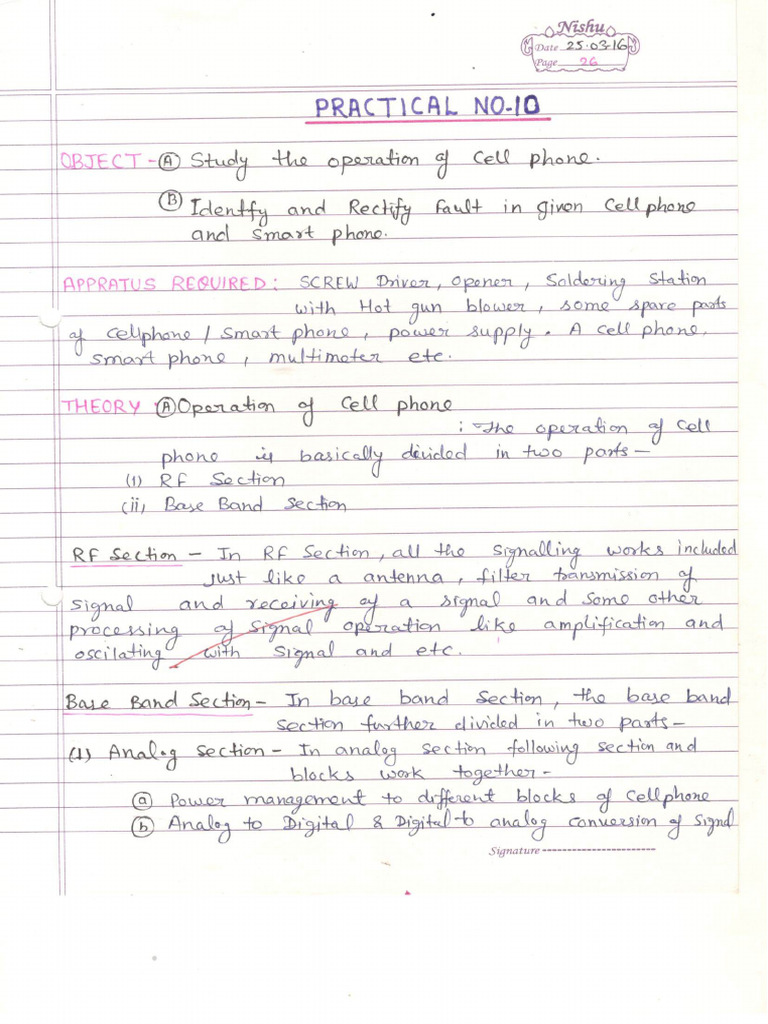 Nishu
Date 25.03.16
Page 26
PRACTICAL NO-10
OBJECT - (A) Study the operation of cell phone.
(B) Identfy and Rectify fault in given cell phone
and smart phone.
APPRATUS REQUIRED: SCREW Driver, opener, Soldering Station
with Hot gun blower, some spare parts
of cellphone / smart phone, power supply. A cell phone,
smart phone, multimeter etc.
THEORY (A) Operation of cell phone
: The operation of cell
phone is basically divided in two parts -
(i) RF Section
(ii) Base Band Section
RF Section - In RF Section, all the signalling works included
just like a antenna, filter transmission of
signal and receiving of a signal and some other
processing of signal operation like amplification and
oscilating with signal and etc.
Base Band Section - In base band section, the base band
section further divided in two parts -
(1) Analog section - In analog section following section and
blocks work together -
(a) Power management to different blocks of cellphone
(b) Analog to Digital & Digital to analog conversion of Signal
Signature -----------------------